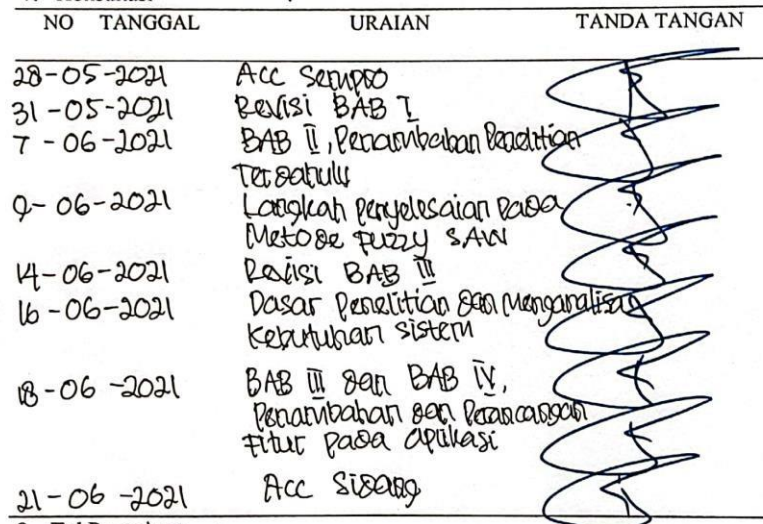 NO TANGGAL URAIAN TANDA TANGAN
28-05-2021 Acc Sempro
31-05-2021 Revisi BAB I
7-06-2021 BAB II, Penambahan Penelitian
Terdahulu
9-06-2021 Langkah penyelesaian pada
Metode Fuzzy SAW
14-06-2021 Revisi BAB III
16-06-2021 Dasar Penelitian dan Menganalisa
Kebutuhan sistem
18-06-2021 BAB III dan BAB IV,
Penambahan dan Perancangan
Fitur pada aplikasi
21-06-2021 Acc Sidang